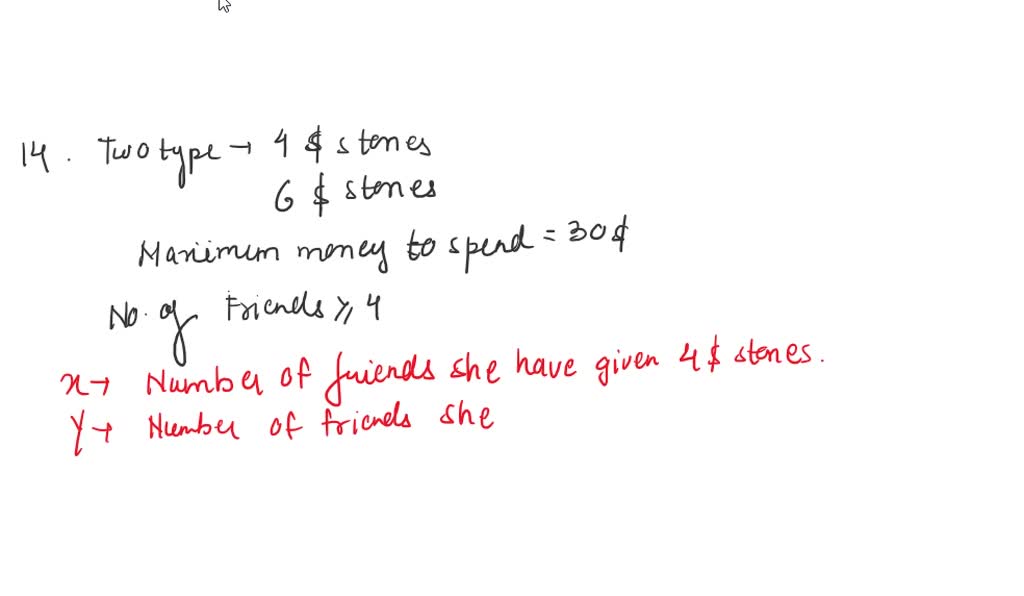 14. Two type → 4 $ stones
6 $ stones
Maximum money to spend = 30 $
No. of Friends ≥ 4
x → Number of friends she have given 4 $ stones.
Y → Number of friends she